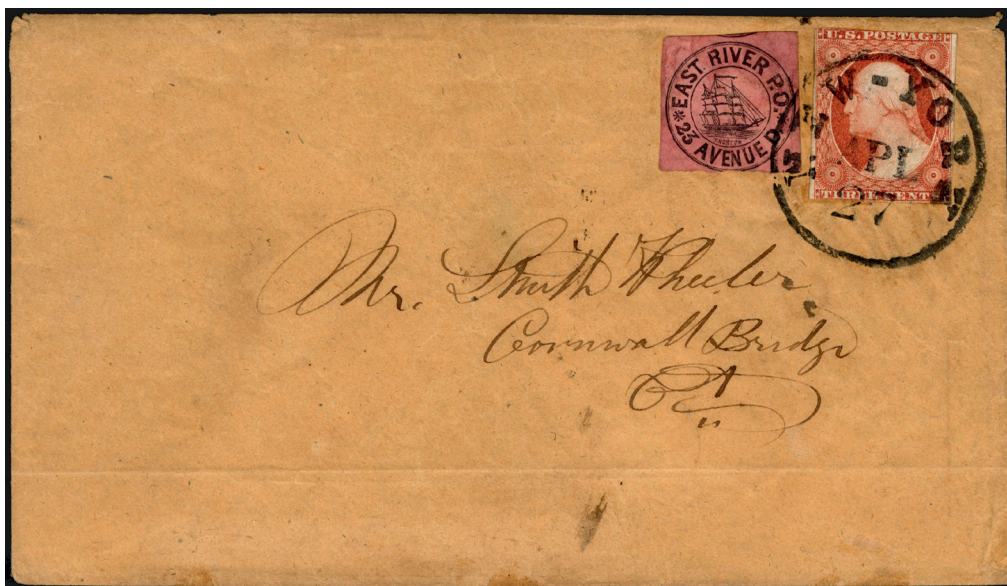 *EAST RIVER P.O.*
23 AVENUE D.
U.S. POSTAGE
THREE CENTS
NEW-YORK
APL
27
Mr. Smith Wheeler
Cornwall Bridge
Ct